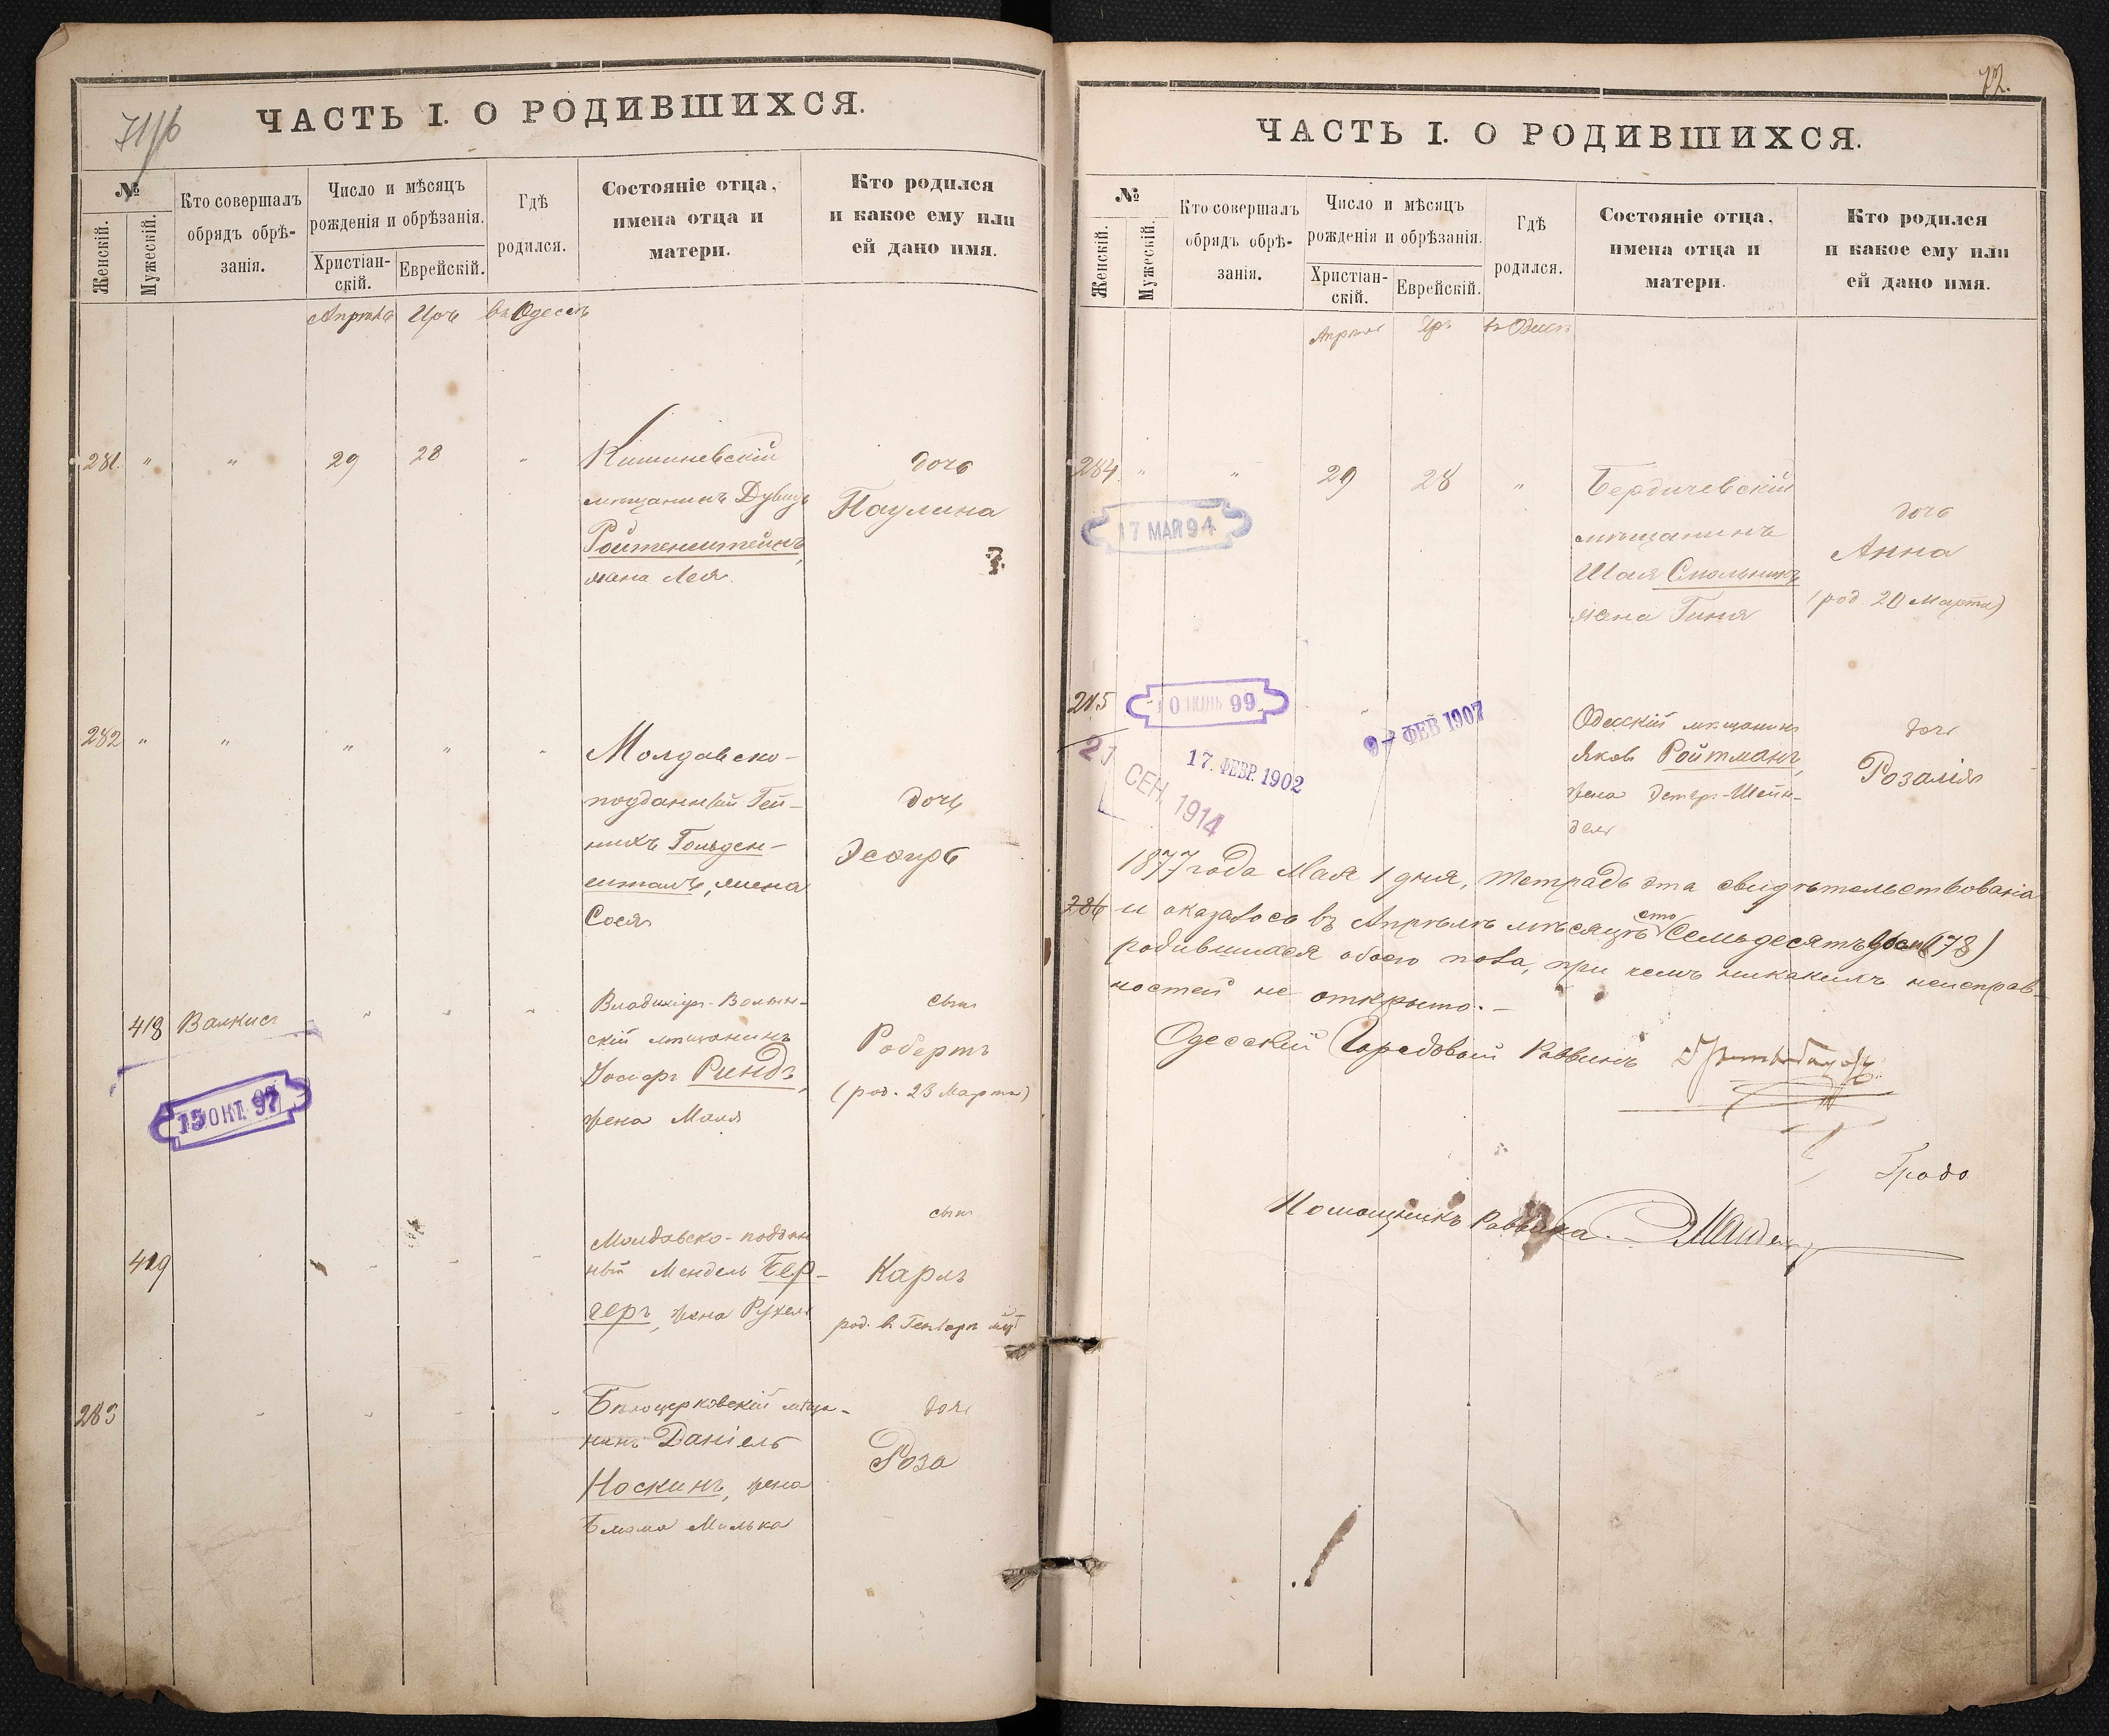 71/об
ЧАСТЬ I. О РОДИВШИХСЯ.
№
Женскій.
Мужескій.
Кто совершалъ
обрядъ обрѣ-
занія.
Число и мѣсяцъ
рожденія и обрѣзанія.
Христіан-
скій.
Еврейскій.
Гдѣ
родился.
Состояніе отца,
имена отца и
матери.
Кто родился
и какое ему или
ей дано имя.
Апрѣль Iиръ въ Одессѣ
281. " " 29 28 "
Кишиневскій
мѣщанинъ Дувидъ
Ройтенштейнъ,
жена Лея.
дочь
Паулина
?
282 " " " " "
Молдавско-
подданный Гей-
нихъ Гольден-
шталь, жена
Сося
дочь
Эсѳирь
418 Валкис " " "
Владимір-Волын-
скій мѣщанинъ
Іосифъ Риндъ,
жена Маля
сынъ
Робертъ
(род. 23 Марта)
15 ОКТ. 97
419
Молдавско-поддан
ный Мендель Бер-
геръ, жена Рухель
сынъ
Карлъ
род. в Генварѣ
283
Бѣлоцерковскій мѣща-
нинъ Даніель
Носкинъ, жена
Блюма Милька
дочь
Роза
72.
ЧАСТЬ I. О РОДИВШИХСЯ.
№
Женскій.
Мужескій.
Кто совершалъ
обрядъ обрѣ-
занія.
Число и мѣсяцъ
рожденія и обрѣзанія.
Христіан-
скій.
Еврейскій.
Гдѣ
родился.
Состояніе отца,
имена отца и
матери.
Кто родился
и какое ему или
ей дано имя.
Апрѣль Iиръ въ Одессѣ
284. " " 29 28 "
17 МАЯ 94
Бердичевскій
мѣщанинъ
Шая Смольникъ
жена Гиня
дочь
Анна
(род. 20 Марта)
285
10 ІЮНЬ 99
9- ФЕВ 1907
17. ФЕВР. 1902
21 СЕН. 1914
Одесскій мѣщанинъ
Яковъ Ройтманъ,
жена Эстеръ-Шейн-
деля
дочь
Розалія
1877 года Мая 1 дня, тетрадь эта свидѣтельствована
286 и оказалось въ Апрѣлѣ мѣсяцѣ сто Семьдесятъ Восемь (178)
родившихся обоего пола, при чемъ никакихъ неисправ-
ностей не открыто.-
Одесскій Городовой Раввинъ
Помощникъ Раввина.